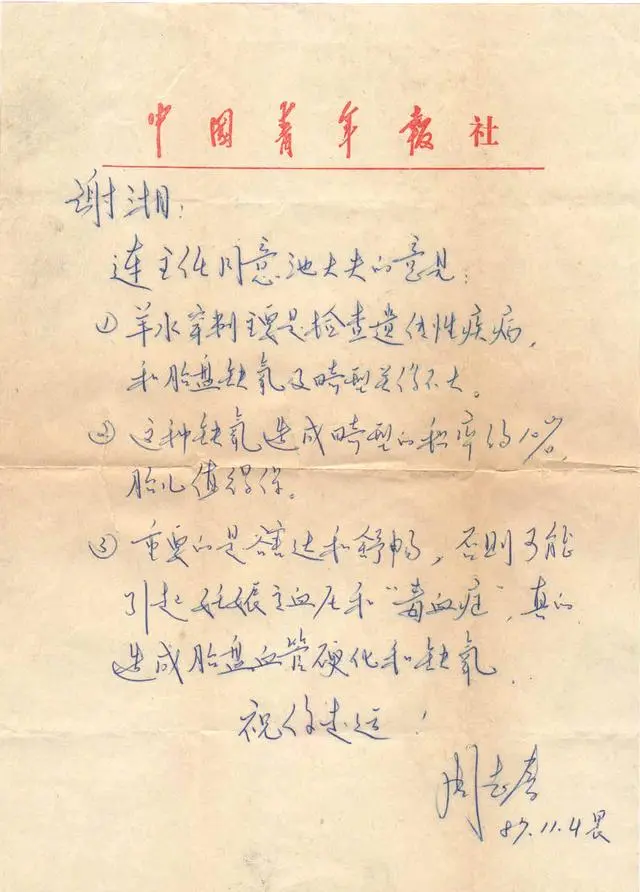 中国青年报社
谢湘:
连主任同意池大夫的意见:
①羊水穿刺主要是检查遗传性疾病,
和胎盘缺氧及畸型关系不大。
②这种缺氧造成畸型的机率约10%,
胎儿值得保。
③重要的是豁达和舒畅,否则可能
引起妊娠高血压和“毒血症”,真的
造成胎盘血管硬化和缺氧.
祝你走运!
周志春
87.11.4晨